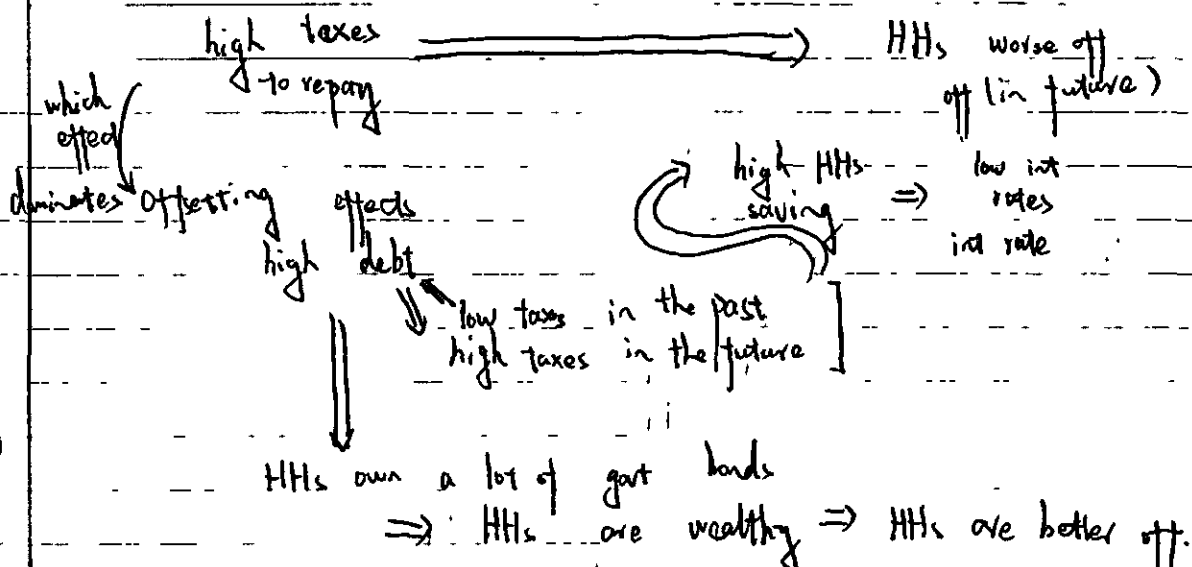 high taxes HHs worse off
to repay off (in future)
which
effect
dominates offsetting effects
high HHs
saving
low int
rates
int rate
high debt
low taxes in the past
high taxes in the future
HHs own a lot of govt bonds
HHs are wealthy HHs are better off.